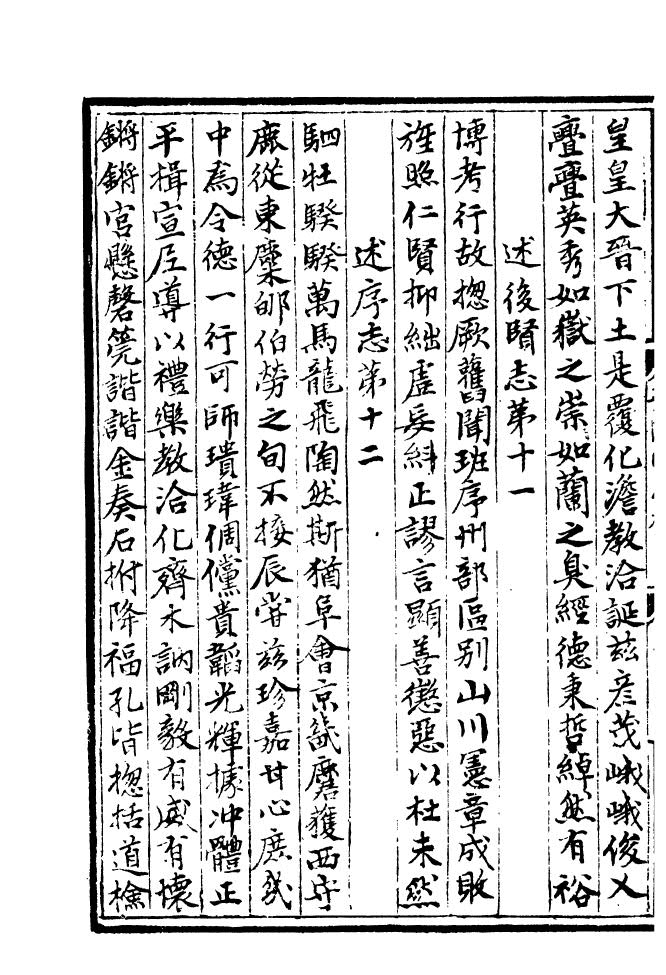 皇皇大晉下土是覆化澹教洽誕玆彦茂峨峨俊乂
亹亹英秀如嶽之崇如蘭之臭經德秉哲綽然有裕
述後賢志第十一
博考行故揔厥舊聞班序州部區别山川憲章成敗
旌照仁賢抑絀虚妄糾正謬言顯善懲惡以杜未然
述序志第十二
駟牡騤騤萬馬龍飛陶然斯猶阜會京畿麕獲西守
鹿從東麋郇伯勞之旬不接辰甞兹珍嘉甘心庶幾
中爲令德一行可師璝瑋倜儻貴韜光輝據冲體正
平揖宣尼導以禮樂教洽化齊木訥剛毅有威有懷
鏘鏘宫懸磬筦諧諧金奏石拊降福孔皆揔括道檢